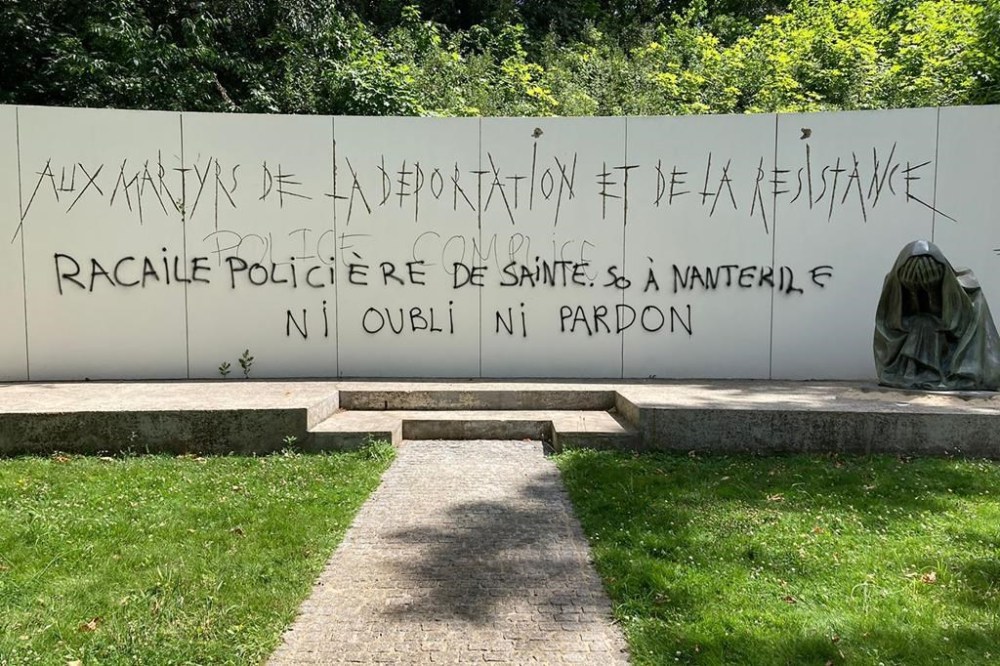 AUX MARTYRS DE LA DEPORTATION ET DE LA RESISTANCE
POLICE COMPLICE
RACAILE POLICIÈRE DE SAINTE.SO À NANTERILE
NI OUBLI NI PARDON